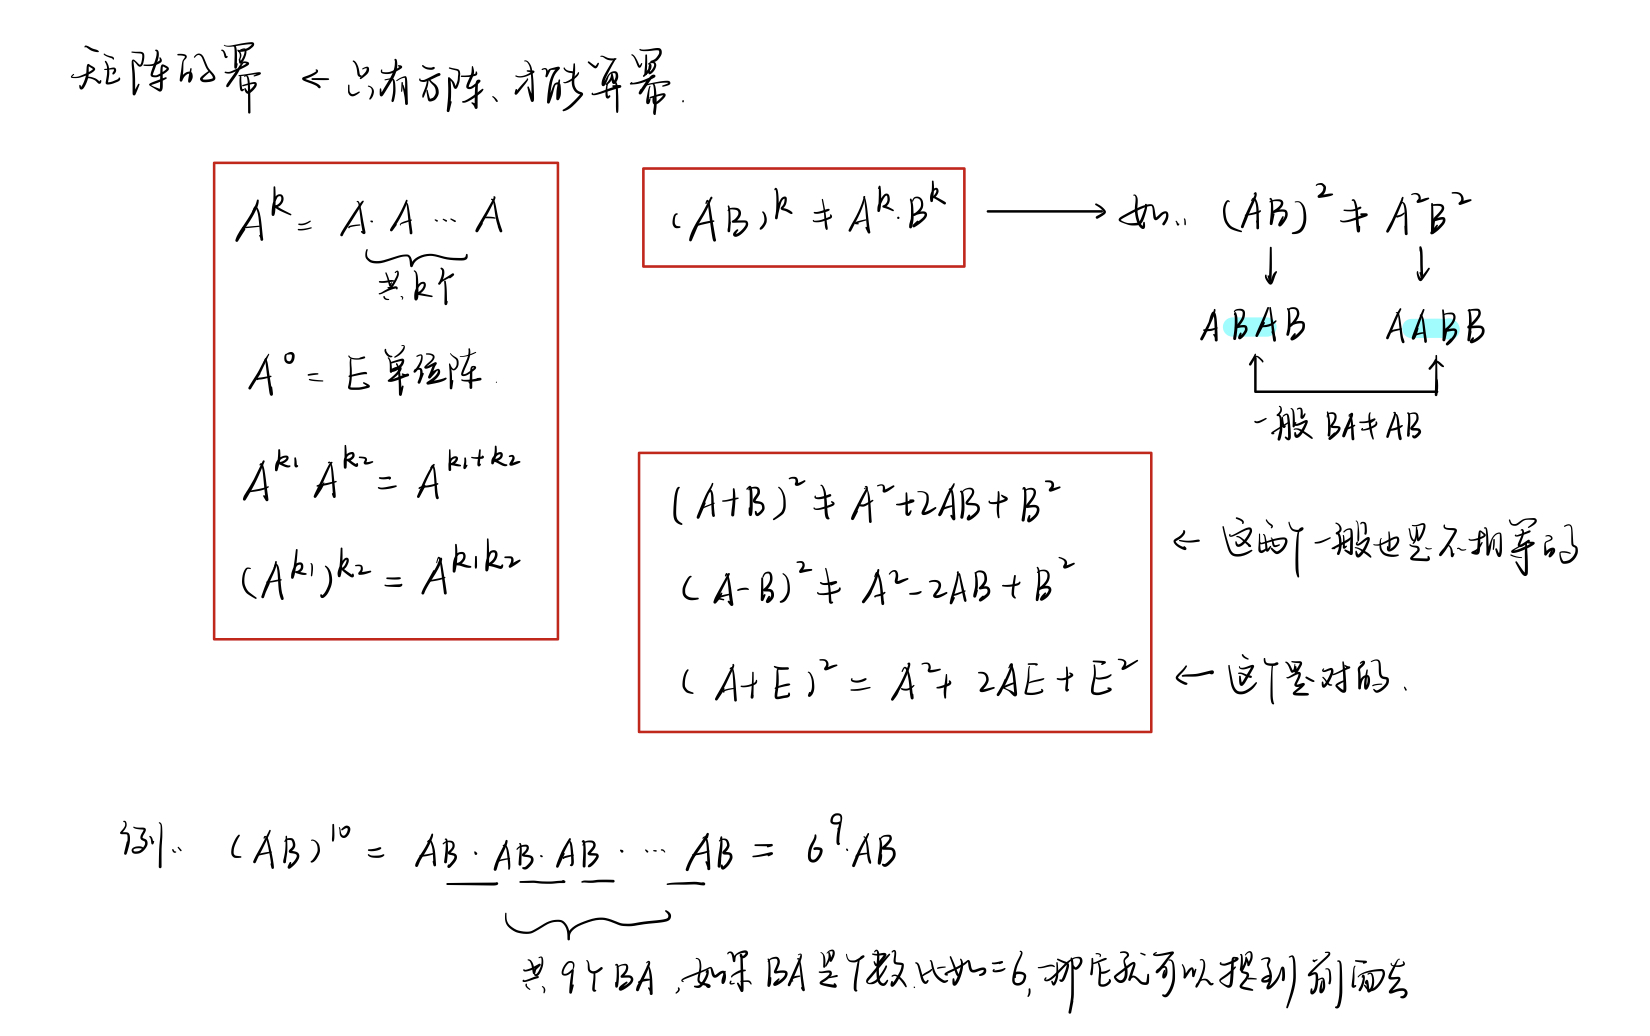 矩阵的幂 ← 只有方阵、才能算幂.
A^k = A·A…A
共k个
A^0 = E 单位阵.
A^k1 A^k2 = A^k1+k2
(A^k1)^k2 = A^k1k2
(AB)^k ≠ A^k·B^k → 如: (AB)^2 ≠ A^2B^2
ABAB AABB
一般 BA≠AB
(A+B)^2 ≠ A^2+2AB+B^2
(A-B)^2 ≠ A^2-2AB+B^2
← 这两个一般也是不相等的
(A+E)^2 = A^2+2AE+E^2 ← 这个是对的.
例: (AB)^10 = AB·AB·AB·…AB = 6^9·AB
共9个BA,如果BA是个数.比如=6,那它就可以提到前面去